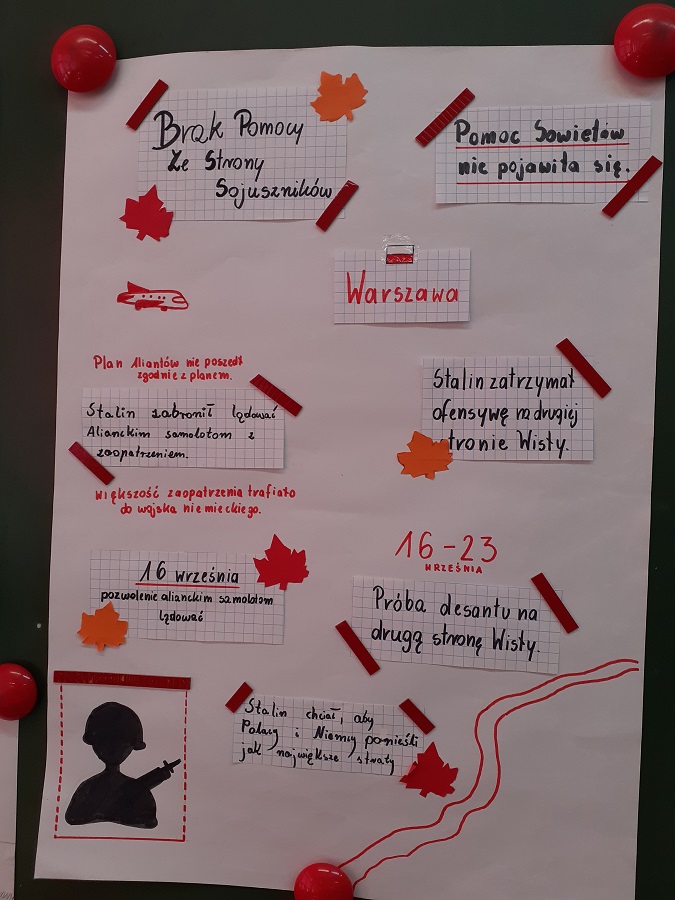 Brak Pomocy
Ze Strony
Sojuszników
Pomoc Sowietów
nie pojawiła się.
Warszawa
Plan Aliantów nie poszedł
zgodnie z planem.
Stalin zabronił lądować
Alianckim samolotom z
zaopatrzeniem.
Stalin zatrzymał
ofensywę na drugiej
stronie Wisły.
Większość zaopatrzenia trafiało
do wojska niemieckiego.
16 września
pozwolenie alianckim samolotom
lądować
16-23
WRZEŚNIA
Próba desantu na
drugą stronę Wisły.
Stalin chciał, aby
Polacy i Niemcy ponieśli
jak największe straty